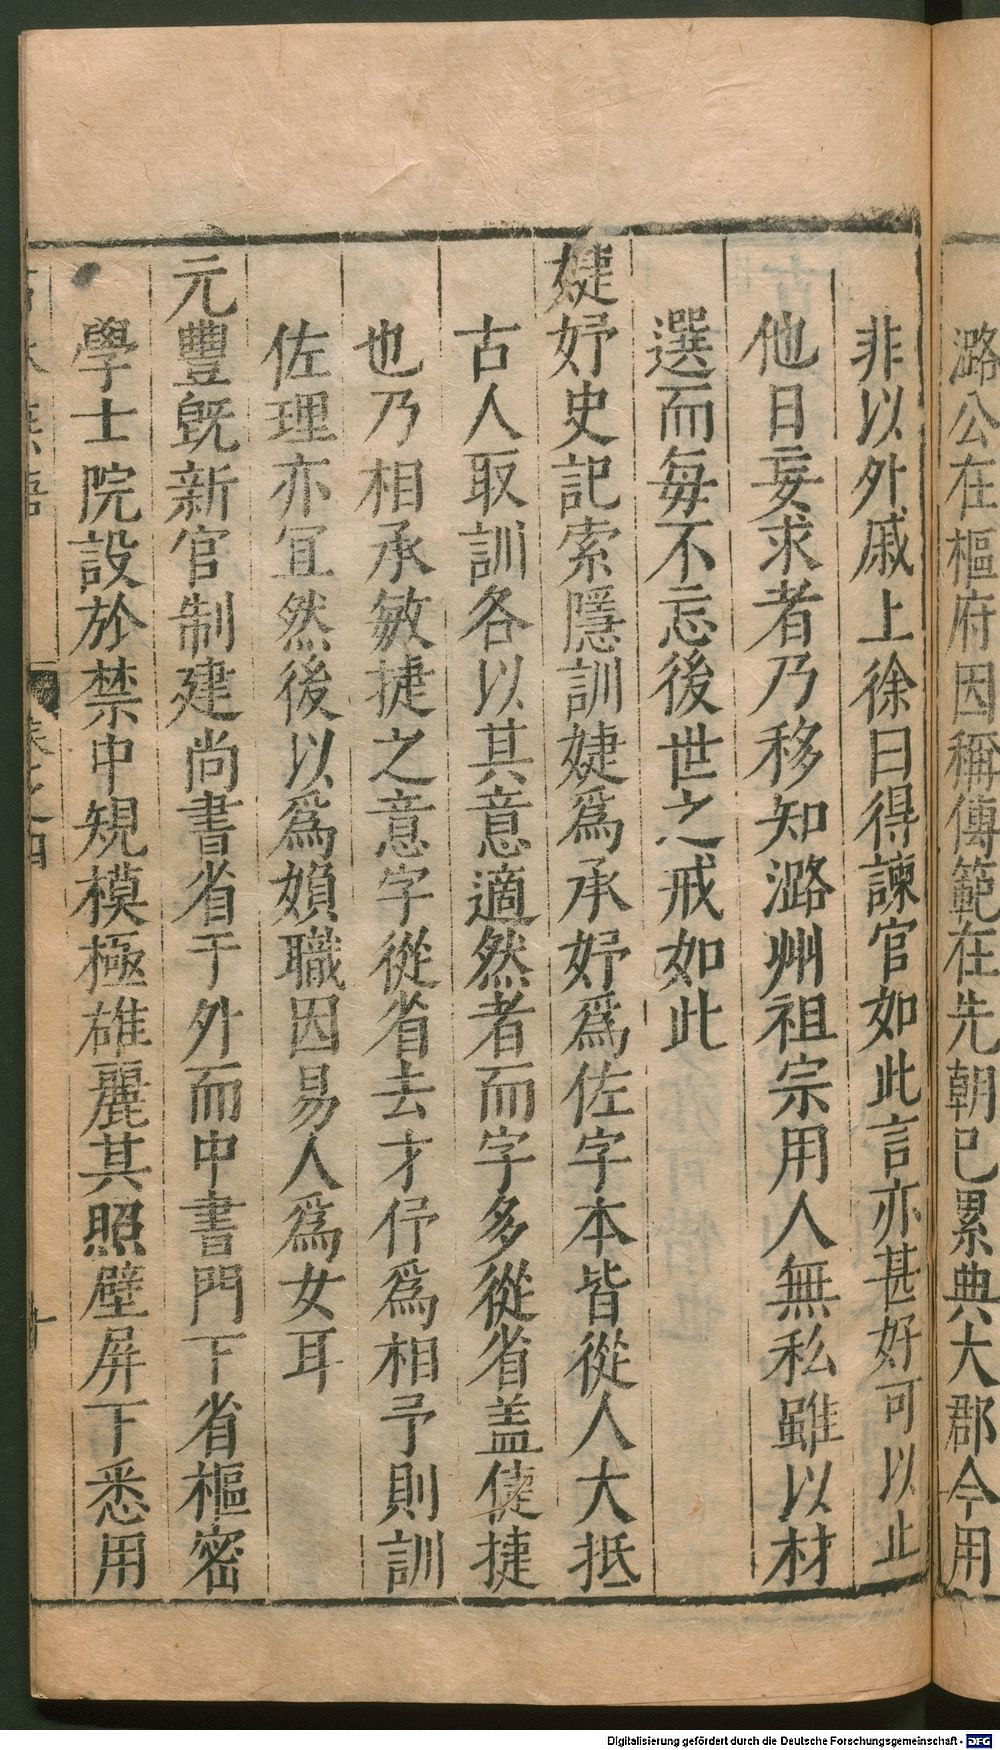 潞公在樞府因稱傳範在先朝已累典大郡今用
非以外戚上徐曰得諫官如此言亦甚好可以止
他日妄求者乃移知潞州祖宗用人無私雖以材
選而每不忘後世之戒如此
婕妤史記索隱訓婕爲承妤爲佐字本皆從人大抵
古人取訓各以其意適然者而字多從省盖倢捷
也乃相承敏捷之意字從省去才伃爲相予則訓
佐理亦冝然後以爲嬪職因易人爲女耳
元豐旣新官制建尚書省于外而中書門下省樞密
學士院設於禁中規模極雄麗其照壁屏下悉用
卷之四
Digitalisierung gefördert durch die Deutsche Forschungsgemeinschaft - DFG